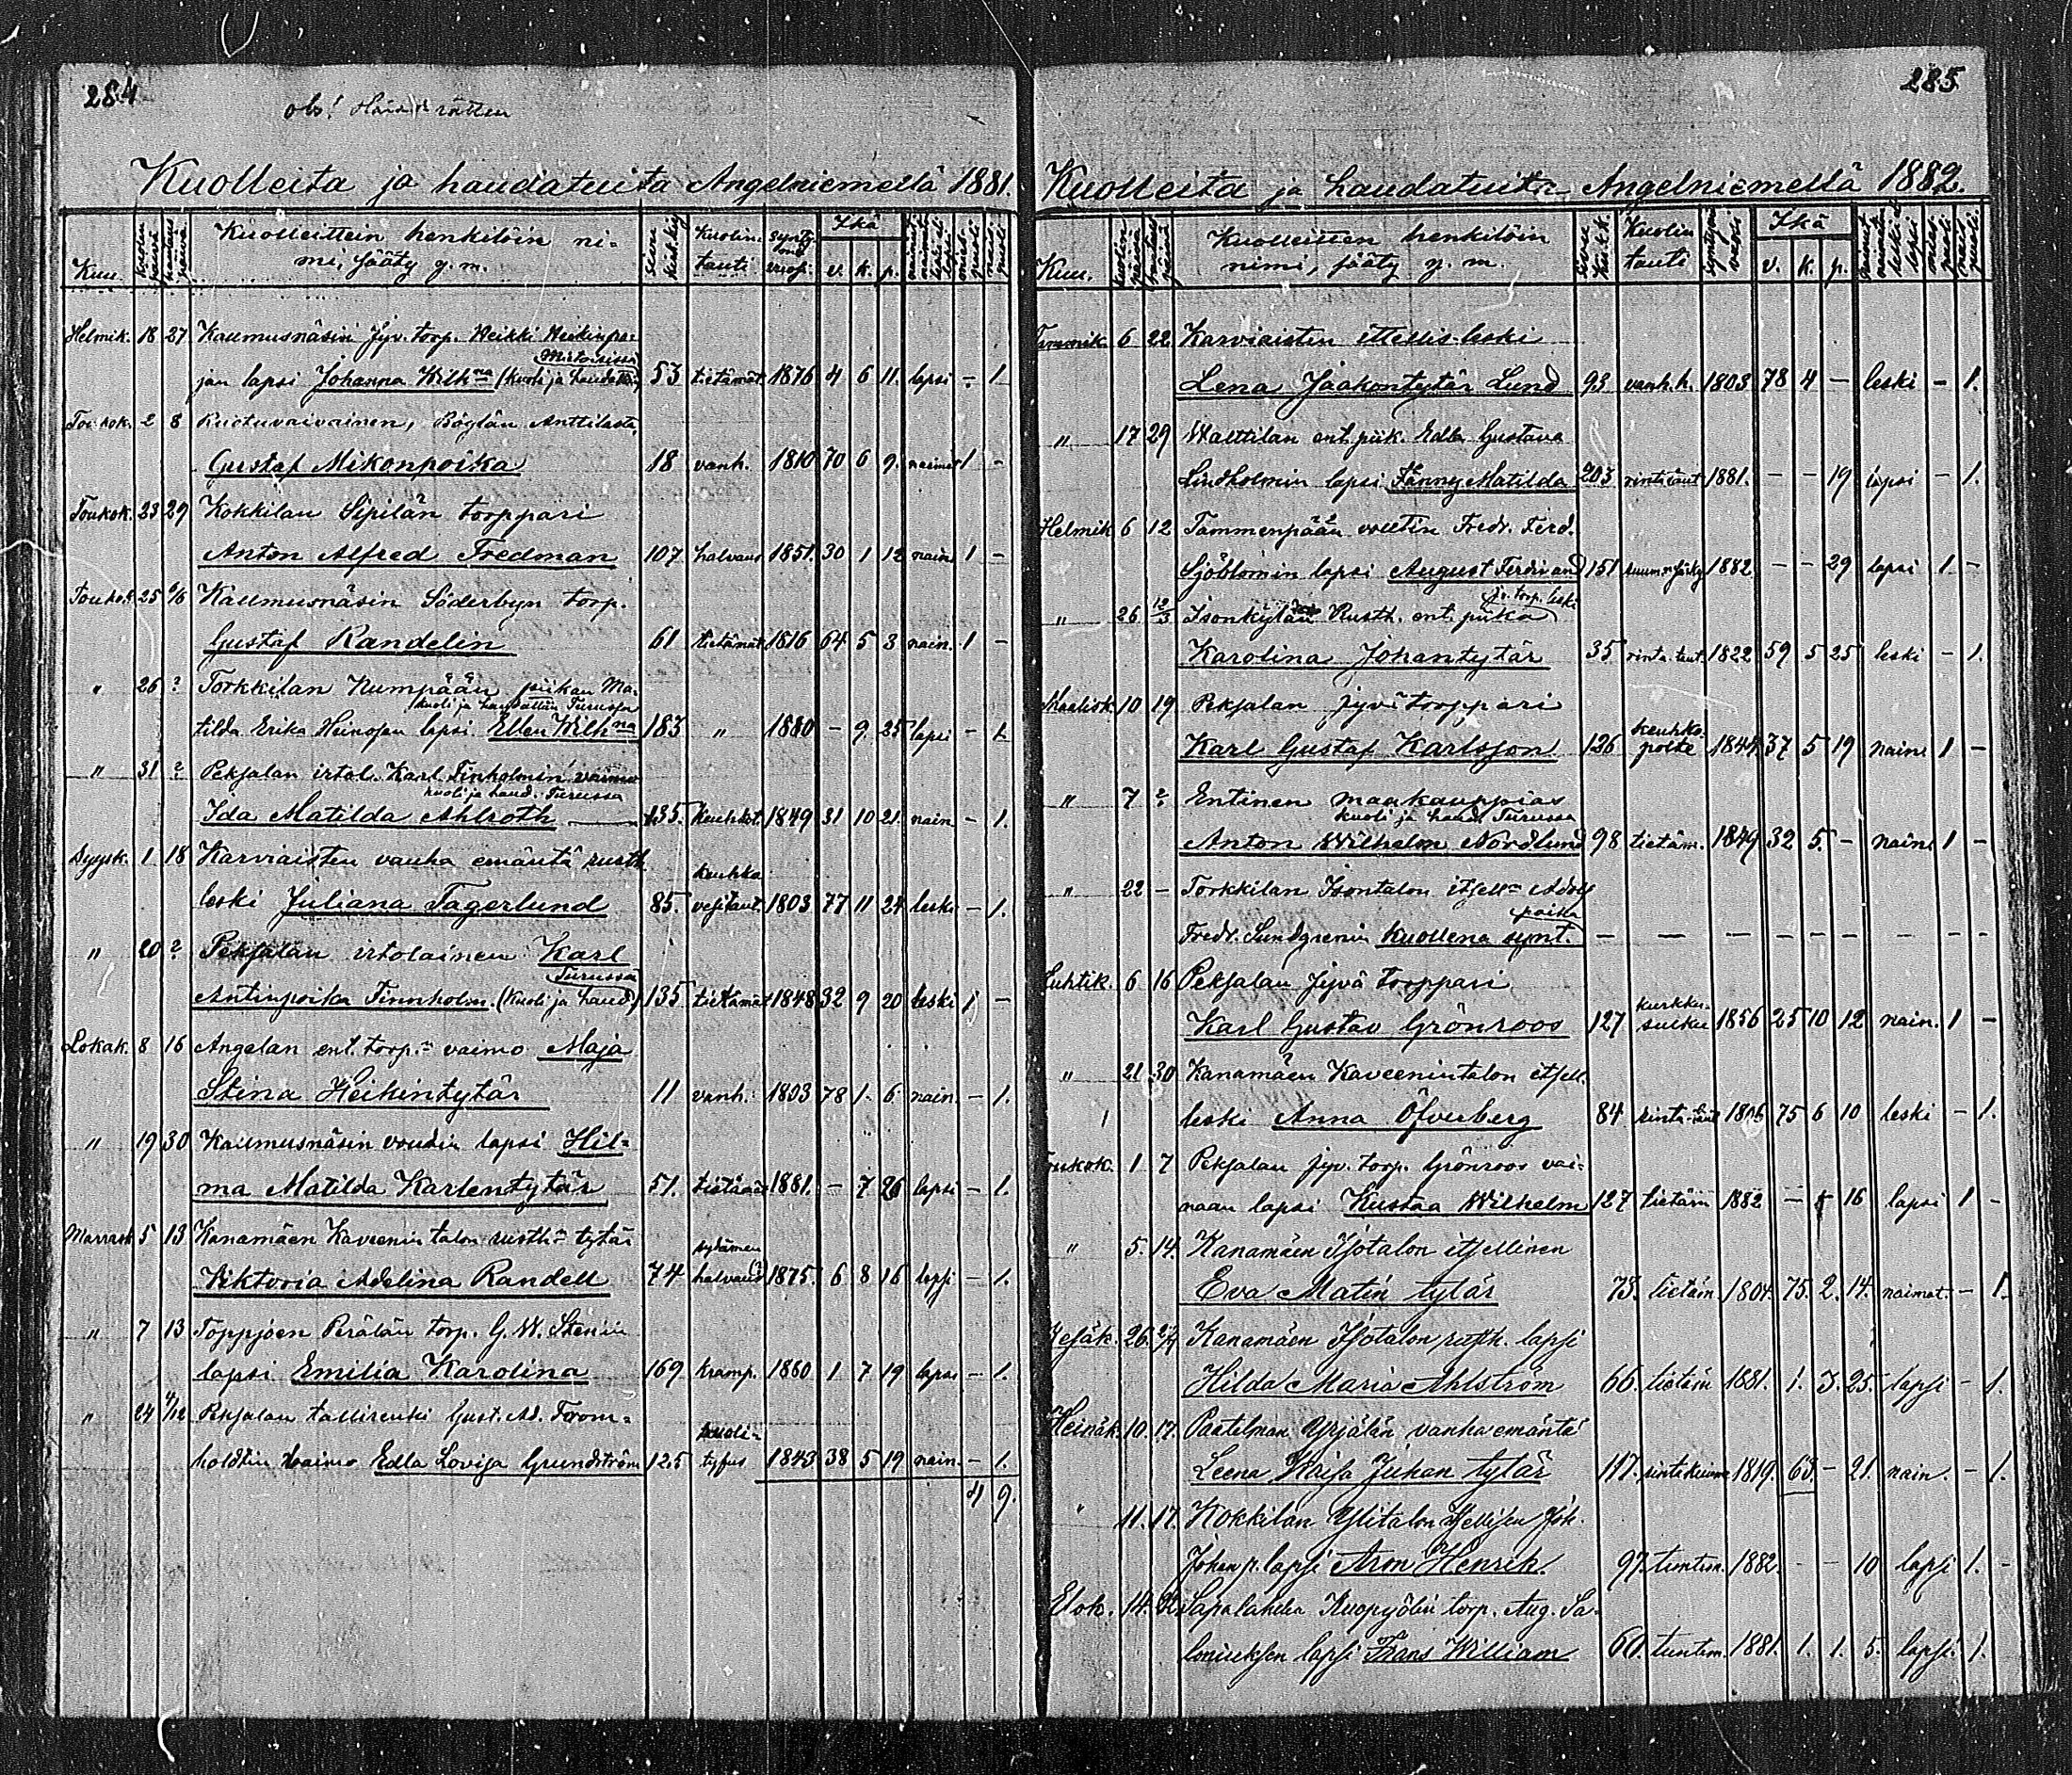 284
obs!
Kuolleita ja haudatuita Angelniemellä 1881.
Kuu. Kuolleittein henkilöin ni- Kuolin- Ikä
mi, sääty y. m. tauti v. k. p.
Helmik. 18 27 Kaumusnäsin Jyv. torp. Heikki Heikinpo-
Mietoisissa
jan lapsi Johanna Wilh:na (kuoli ja haudattiin) 53 tietämät. 1876 4 6 11 lapsi - 1
Toukok. 2 8 Ruotuvaivainen, Böylän Anttilasta,
Gustaf Mikonpoika 18 vanh. 1810 70 6 9. naimat 1 -
Toukok. 23 29 Kokkilan Sipilän torppari
Anton Alfred Fredman 107 halvaus 1851. 30 1 12 nain. 1 -
Toukok. 25 6/6 Kaumusnäsin Söderbyn torp.
Gustaf Randelin 61 tietämät. 1816 64 5 3 nain. 1 -
" 26 ? Torkkilan Numpään piikan Ma-
kuoli ja haudattiin Turussa
tilda Erika Heinosen lapsi Ellen Wilh:na 183 " 1880 - 9 25 lapsi - 1
" 31 ? Peksalan irtol. Karl Finholmin vaimo
kuoli ja haud. Turussa
Ida Matilda Ahlroth 135. Keuhkot. 1849 31 10 21. nain. - 1.
Syysk. 1 18 Karviaisten vanha emäntä rusth.
keuhko
leski Juliana Fagerlund 85. vesitaut. 1803 77 11 24 leski - 1.
" 20 ? Peksalan irtolainen Karl
Turussa
Antinpoika Finnholm. (kuoli ja haud.) 135 tietämät 1848 32 9 20 leski 1 -
Lokak. 8 16 Angelan ent. torp:n vaimo Maja
Stina Heikintytär 11 vanh. 1803 78 1. 6 nain. - 1.
" 19 30 Kaumusnäsin voudin lapsi Hil-
ma Matilda Karlentytär 51. tietämät 1881. - 7 26 lapsi - 1.
Marrask 5 13 Kanamäen Kaveenin talon rusth:n tytär
sydämen
Viktoria Adelina Randell 74 halvaus 1875. 6 8 16 lapsi - 1.
" 7 13 Toppjoen Perälän torp. G. W. Stenin
lapsi Emilia Karolina 169 kramp. 1880 1 7 19 lapsi - 1.
" 24 4/12 Peksalan tallirenki Gust. Ad. From-
holdtin vaimo Edla Lovisa Grundström 125 tyfus 1843 38 5 19 nain. - 1.
9.
285
Kuolleita ja haudatuita Angelniemellä 1882.
Kuu. Kuolleitten henkilöin Kuolin Ikä
nimi, sääty y. m. tauti v. k. p.
Tammik 6 22 Karviaisten ittellis-leski
Lena Jaakontytär Lund 93. vanh. h. 1803 78 4 - leski - 1.
" 17 29 Walttilan ent. piik. Edla Gustava
Lindholmin lapsi Fanny Matilda 203 rintataut. 1881. - - 19 lapsi - 1.
Helmik 6 12 Tammenpään voutin Fredr. Ferd.
Sjöblomin lapsi August Ferdinand 151 1882 - - 29 lapsi 1. -
jv. torp. leski
" 26 12/3 Isonkylän Rusth. ent. piika
Karolina Johantytär 35 rinta-taut. 1822 59 5 25 leski - 1.
Maalisk 10 19 Peksalan Jyvätorppari
keuhko-
Karl Gustaf Karlsson 126 polte 1844 37 5 19 nain. 1 -
" 7 ? Entinen maakauppias
kuoli ja haud. Turussa
Anton Wilhelm Nordlund 98 tietäm. 1849 32 5. - nain. 1 -
" 22 - Torkkilan Isontalon itsell:n Adolf
poika
Fredr. Sundgrenin kuollena synt. - - - - - - - - -
Huhtik. 6 16 Peksalan Jyvä torppari
kurkku-
Karl Gustav Grönroos 127 sulku 1856 25 10 12 nain. 1 -
" 21 30 Kanamäen Kaveenintalon itsell.
leski Anna Öfverberg 84 rinta-taut 1806 75 6 10 leski - 1.
Toukok. 1 7 Peksalan jyv. torp. Grönroos vai-
naan lapsi Kustaa Wilhelm 127 tietäm 1882 - 16 lapsi 1 -
" 5. 14. Kanamäen Isotalon itsellinen
Eva Matin tytär 73. tietäm. 1804. 75. 2. 14. naimat. - 1.
Kesäk. 26. 2/7 Kanamäen Isotalon rusth. lapsi
Hilda Maria Ahlström 66. tietäm 1881. 1. 3. 25. lapsi - 1.
Heinäk. 10. 17. Paatelman Yrjälän vanha emäntä
Leena Kaisa Juhan tytär 117. 1819. 63. - 21. nain. - 1.
" 11. 17. Kokkilan Ylitalon itsellisen Joh.
Johanp. lapsi Aron Henrik. 97. tuntem. 1882. - - 10 lapsi 1. -
Elok. 14. Sapalahden Kuopyölin torp. Aug. Sa-
loniuksen lapsi Frans William 60. tuntem. 1881. 1. 1. 5. lapsi. 1.